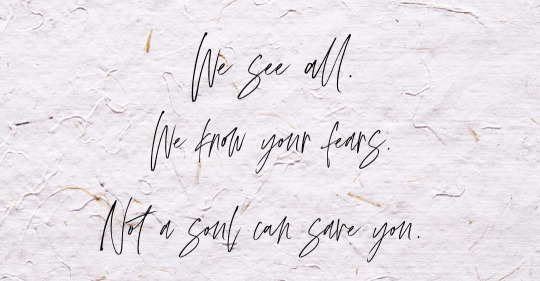 We see all.
We know your fears.
Not a soul can save you.